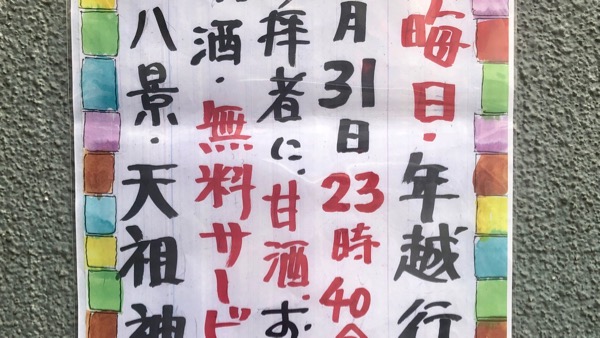 晦日・年越行
月31日23時40分
拝者に、甘酒、お
酒・無料サービ
八景・天祖神